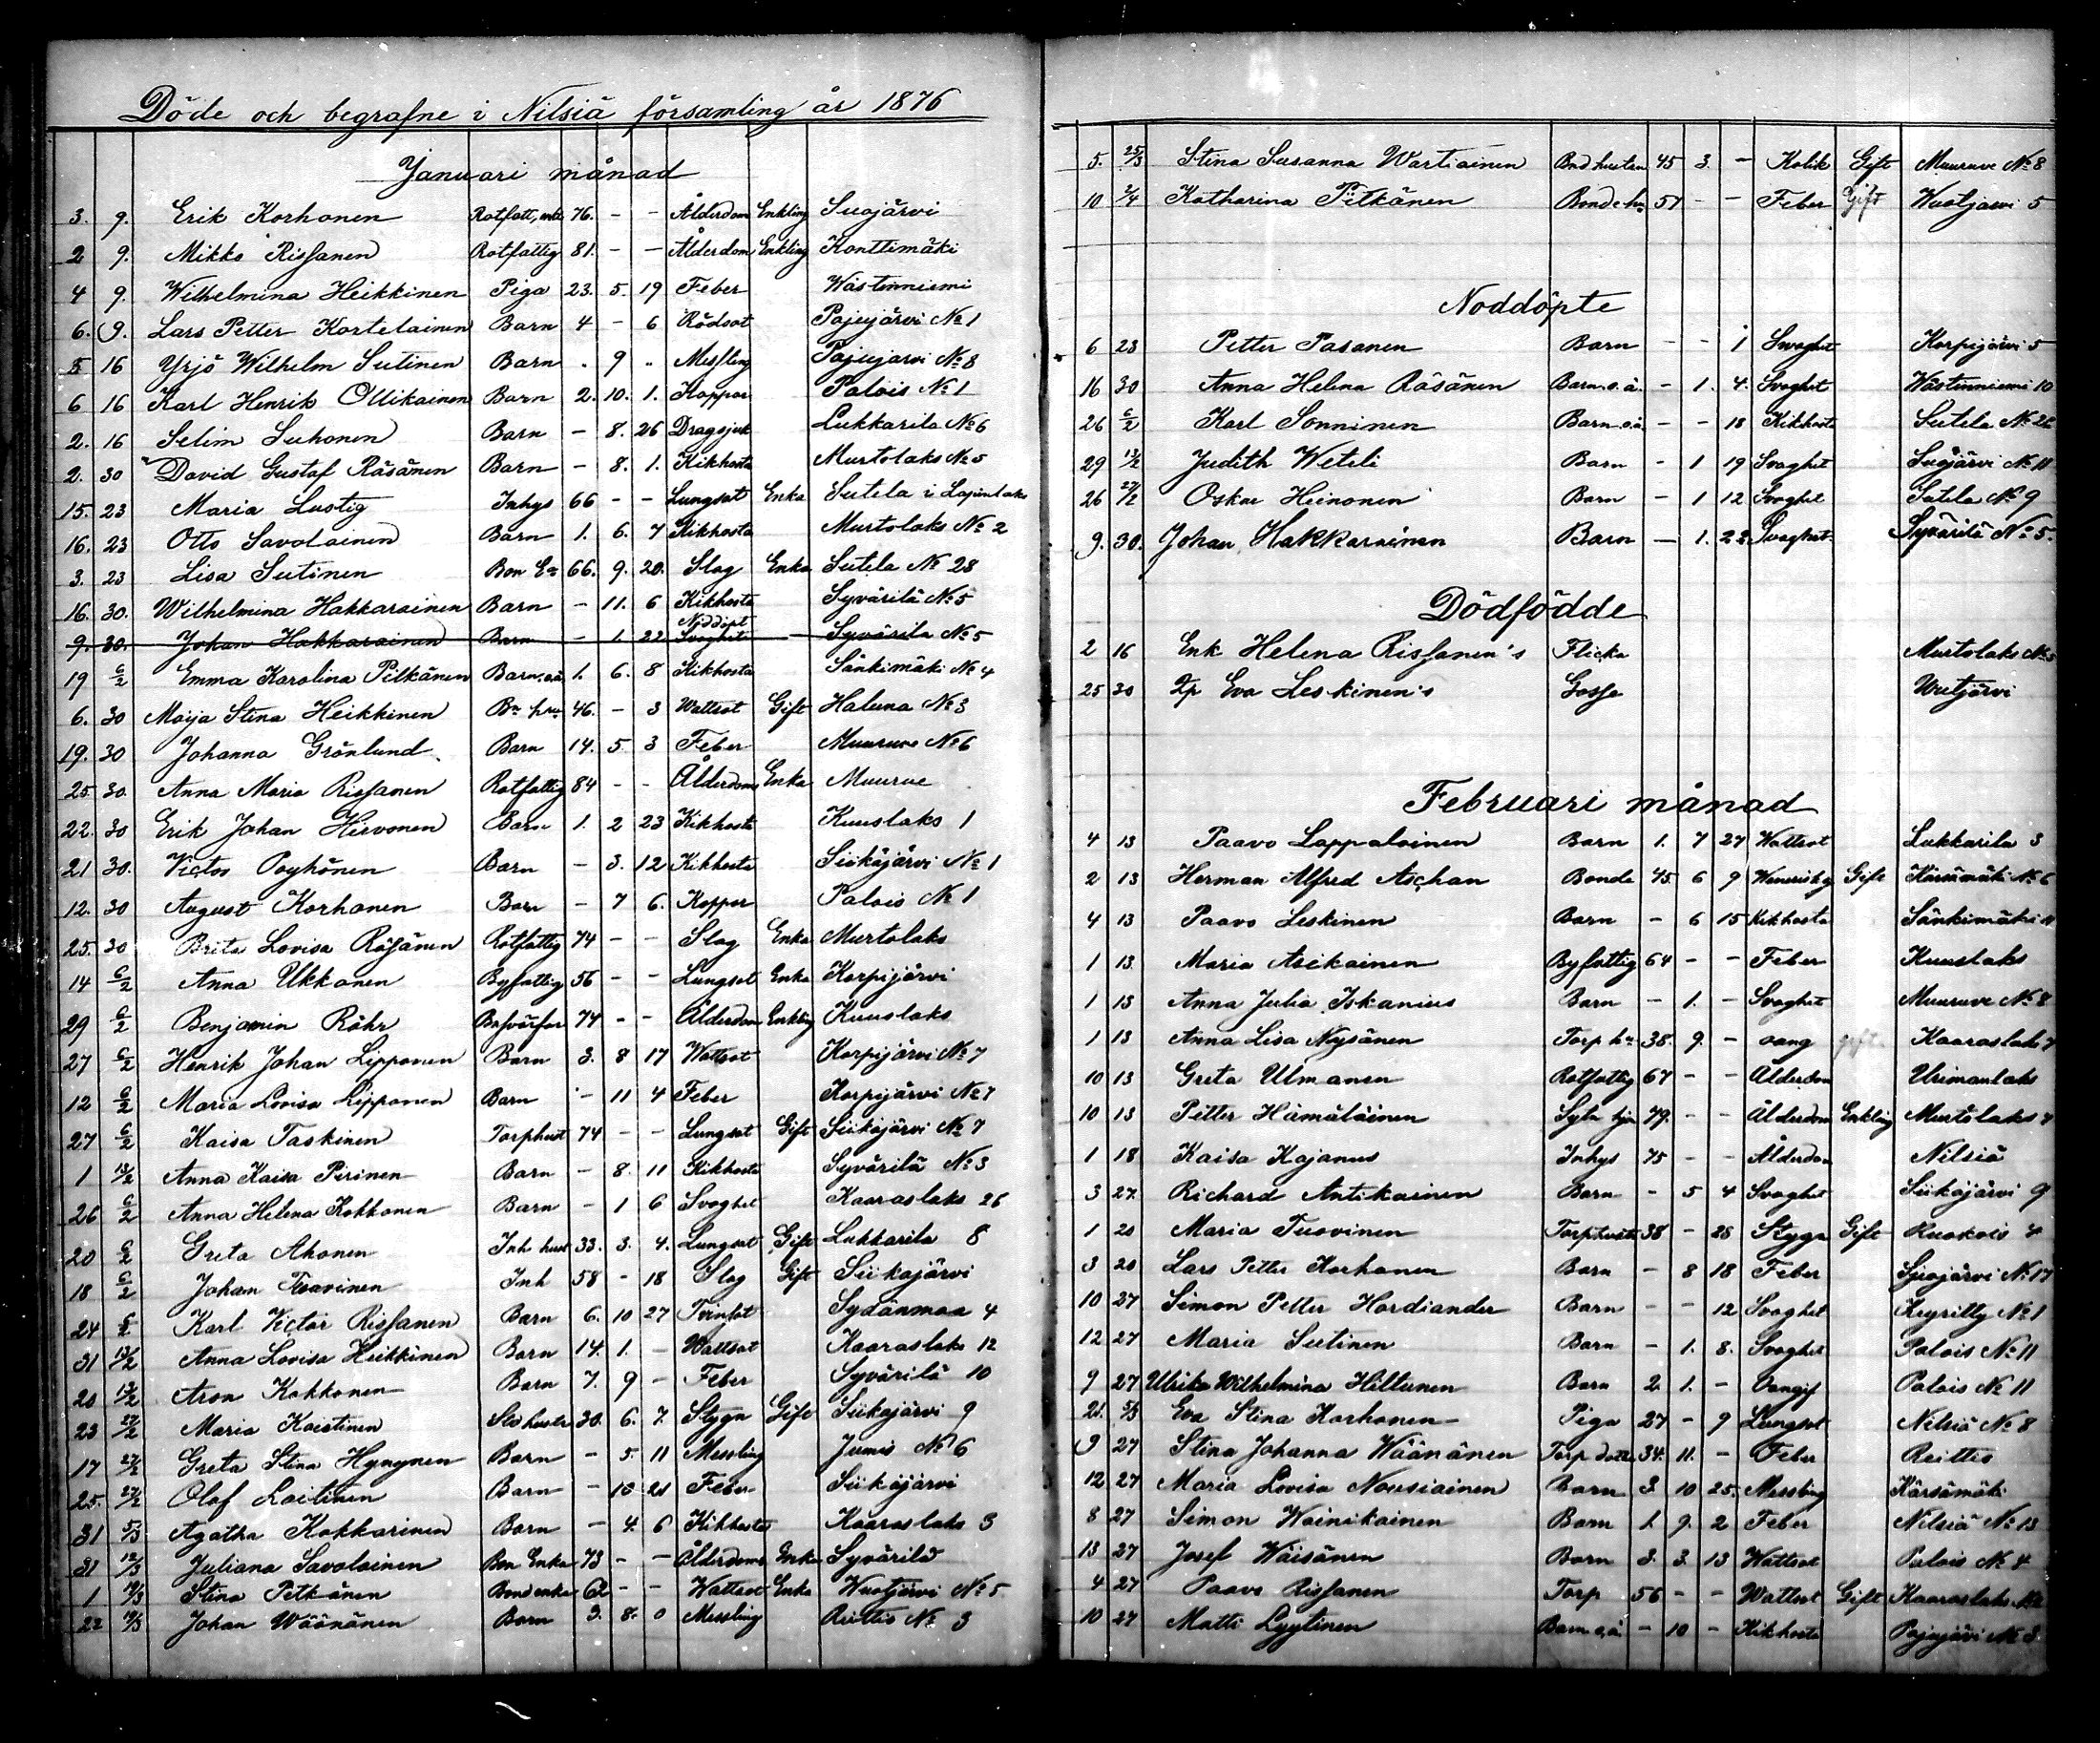 Döde och begrafne i Nilsiä församling år 1876
Januari månad
3. 9. Erik Korhonen Rotfatt, enkl 76. - - Ålderdom Enkling Suojärvi
2 9. Mikko Rissanen Rotfattig 81. - - Ålderdom Enkling Konttimäki
4 9. Wilhelmina Heikkinen Piga 23. 5. 19 Feber Wästinniemi
6. 9. Lars Petter Kortelainen Barn 4 - 6 Rödsot Pajujärvi No 1
5 16 Yrjö Wilhelm Sutinen Barn . 9 .. Messling Pajujärvi No 8
6 16 Karl Henrik Ollikainen Barn 2. 10. 1. Koppor Palois No 1
2. 16 Selim Suhonen Barn - 8. 26 Dragsjuk Lukkarila No 6
2. 30 David Gustaf Räsänen Barn - 8. 1. Kikhosta Murtolaks No 5
15. 23 Maria Lustig Inhys 66 - - Lungsot Enka Sutela i Lajunlaks
16. 23 Otto Savolainen Barn 1. 6. 7 Kikhosta Murtolaks No 2
3. 23 Lisa Sutinen Bon Ea 66. 9. 20. Slag Enka Sutela No 28
16. 30. Wilhelmina Hakkarainen Barn - 11. 6 Kikhosta Syvärilä No 5
9. 30. Johan Hakkarainen Barn - 1. 22 Nöddöpt Svaghet - Syvärilä No 5
19 6/2 Emma Karolina Pitkänen Barn, o.ä. 1. 6. 8 Kikhosta Sänkimäki No 4
6. 30 Maija Stina Heikkinen Bn hru 46. - 3 Wattsot Gift Haluna No 3
19. 30 Johanna Grönlund Barn 14. 5. 3 Feber Muuruve No 6
25. 30. Anna Maria Rissanen Rotfattig 84 - - Ålderdoms Enka Muurue
22. 30 Erik Johan Hirvonen Barn 1. 2 23 Kikhosta Kuuslaks 1
21 30. Victor Pöyhönen Barn - 3. 12 Kikhosta Siikäjärvi No 1
12. 30 August Korhonen Barn - 7 6. Koppor Palois No 1
25. 30 Brita Lovisa Räsänen Rotfattig 74 - - Slag Enka Murtolaks
14 6/2 Anna Ukkonen Byfattig 56 - - Lungsot Enka Korpijärvi
29 6/2 Benjamin Röhr 74 - - Ålderdom Enkling Kuuslaks
27 6/2 Henrik Johan Lipponen Barn 3. 8 17 Wattsot Korpijärvi No 7
12 6/2 Maria Lovisa Lipponen Barn - 11 4 Feber Korpijärvi No 7
27 6/2 Kaisa Taskinen Torphust 74 - - Lungsot Gift Siikajärvi No 7
1 13/2 Anna Kaisa Pirinen Barn - 8. 11 Kikhosta Syvärilä No 3
26 6/2 Anna Helena Kokkonen Barn - 1 6 Svaghet Kaaraslaks 26
20 6/2 Greta Ahonen Inh hust 33. 3. 4. Lungsot Gift Lukkarila 8
18 6/2 Johan Tuovinen Inh 58 - 18 Slag Gift Siikajärvi
24 6/2 Karl Victor Rissanen Barn 6. 10 27 Tvinsot Sydänmaa 4
31 13/2 Anna Lovisa Heikkinen Barn 14. 1. - Wattsot Kaaraslaks 12
20 13/2 Aron Kokkonen Barn 7. 9 - Feber Syvärilä 10
23 27/2 Maria Koistinen 30. 6. 7. Stygn Gift Siikajärvi 9
17 27/2 Greta Stina Hynynen Barn - 5. 11 Messling Jumis No 6
25. 27/2 Olof Laitinen Barn - 10 21 Feber Siikäjärvi
31 5/3 Agatha Kokkarinen Barn - 4. 6 Kikhosta Kaaraslaks 3
31 12/3 Juliana Savolainen Bon Enka 73 - - Ålderdoms Enka Syvärilä
1 19/3 Stina Pitkänen Bondenka 62 - - Wattsot Enka Wuotjärvi No 5
22 19/3 Johan Wäänänen Barn 3. 8. 0 Messling Reittio No 3
5. 25/3 Stina Susanna Wartiainen Bndhustru 45 3. - Kolik Gift Muuruve No 8
10 2/4 Katharina Pitkänen Bondehu 51 - - Feber Gift Wuotjärvi 5
Nöddöpte
6 23 Petter Pasanen Barn - - 1 Swaghet Korpijärvi 5
16 30 Anna Helena Räsänen Barn. o.ä. - 1. 4. Svaghet Wästinniemi 10
26 6/2 Karl Sonninen Barn o.ä - - 18 Kikhosta Sutela No 26
29 13/2 Judith Weteli Barn - 1 19 Svaghet Suojärvi No 11
26 27/2 Oskar Heinonen Barn - 1 12 Svaghet Sutela No 9
9. 30. Johan Hakkarainen Barn - 1. 22 Svaghet Syvärilä No 5.
Dödfödde
2 16 Enk Helena Rissanen's Flicka Murtolaks No 5
25 30 Qp Eva Leskinen's Gosse Wuotjärvi
Februari månad
4 13 Paavo Lappalainen Barn 1. 7 27 Wattsot Lukkarila 3
2 13 Herman Alfred Aschan Bonde 45 6 9 Gift Kärsämäki No 6
4 13 Paavo Leskinen Barn - 6 15 Kikhosta Sänkimäki 11
1 13 Maria Asikainen Byfattig 64 - - Feber Kuuslaks
1 13 Anna Julia Iskanius Barn - 1. - Svaghet Muuruve No 8
1 13 Anna Lisa Nysänen Torp hu 38. 9. - gift Kaaraslaks 7
10 13 Greta Ulmanen Rotfattig 67 - - Ålderdom Urimanlaks
10 13 Petter Hämäläinen 79. - - Ålderdom Enkling Murtolaks 4
1 18 Kaisa Kajanus Inhys 75 - - Ålderdom Nilsiä
3 27 Richard Antikainen Barn - 5 4 Svaghet Siikajärvi 9
1 20 Maria Tuovinen Torphustr 38 - 28 Stygn Gift 4
3 20 Lars Petter Korhonen Barn - 8 18 Feber Syvajärvi No 17
10 27 Simon Petter Hardiander Barn - - 12 Svaghet Keyritty No 1
12 27 Maria Sutinen Barn - 1. 8. Svaghet Palois No 11
9 27 Ulrika Wilhelmina Hiltunen Barn 2. 1. - Oangif Palois No 11
21. 5/3 Eva Stina Korhonen Piga 27 - 9 Lungsot Nilsiä No 8
9 27 Stina Johanna Wäänänen Torp dott. 34. 11. - Feber Reittio
12 27 Maria Lovisa Nousiainen Barn 3 10 25. Messling Kärsämäki
8 27 Simon Wainikainen Barn 1. 9. 2 Feber Nilsiä No 13
13 27 Josef Wäisänen Barn 3. 3. 13 Wattsot Palois No 4
4 27 Paavo Rissanen Torp 56 - - Wattsot Gift Kaaraslaks
10 27 Matti Lyytinen Barn o.ä. - 10 - Kikhosta Pajujärvi No 3